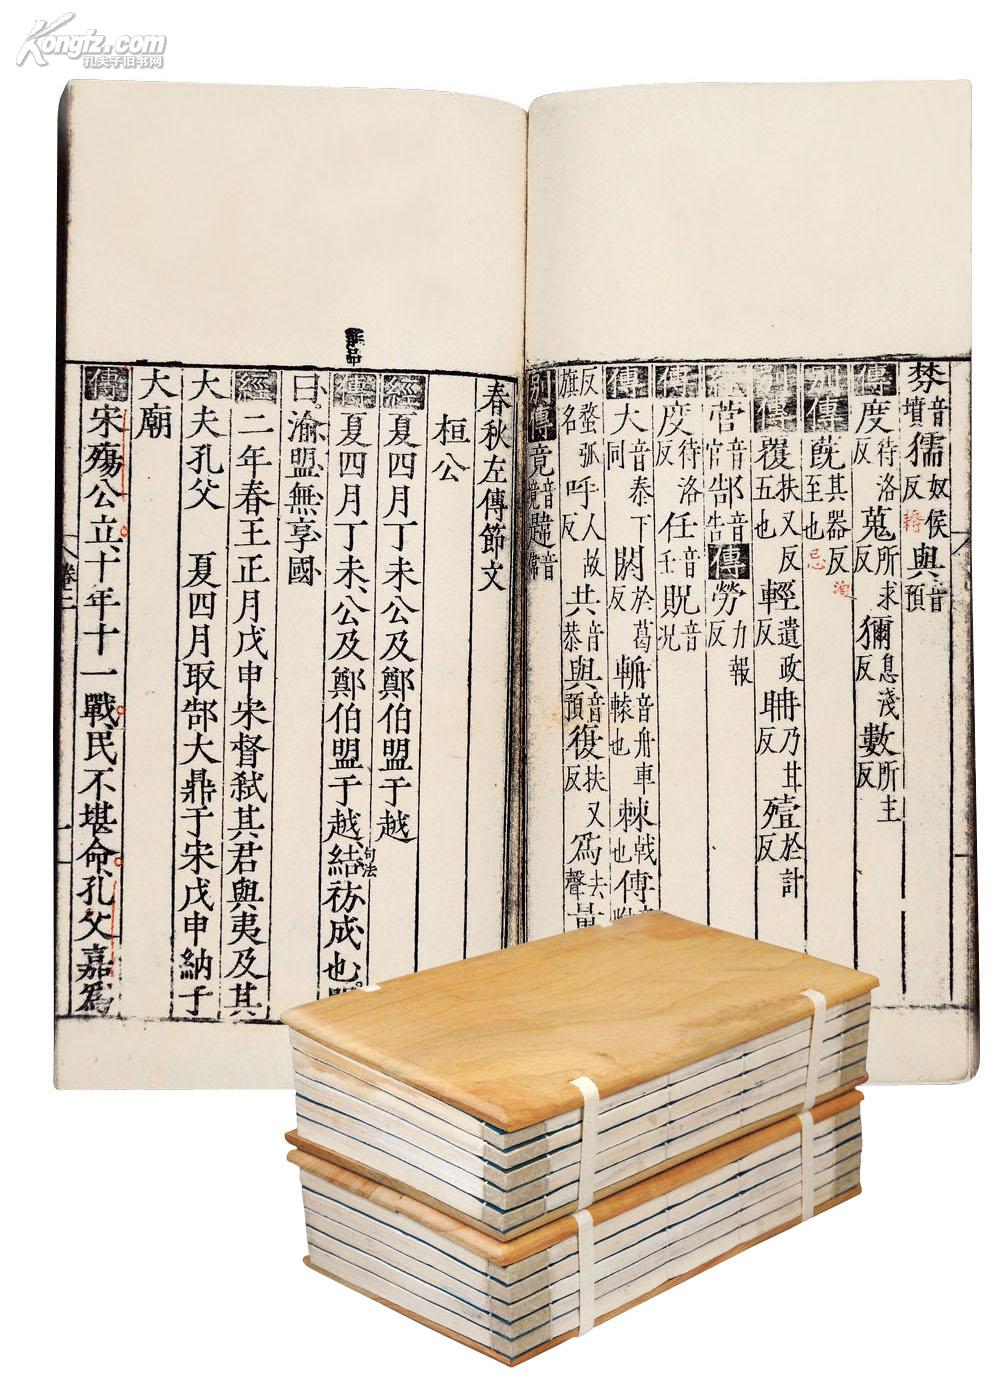 Kongfz.com
孔夫子旧书网
棼音墳獳奴候反與音預
傳度待洛反蒐所求反獮息淺反數所主反
別傳旣其器反至也
別傳覆扶又反五也輕遣政反聃乃甘反殪於計反
經菅音官郜音告傳勞力報反
傳度待洛反任音壬貺音況
傳大音泰下同閼於葛反輈音舟車轅也棘戟也傅
旗名反蝥弧呼人故反共音恭與音預復扶又反爲去聲
別傳竟音境
春秋左傳節文
桓公
經夏四月丁未公及鄭伯盟于越
傳夏四月丁未公及鄭伯盟于越結祊成也盟
句法
曰渝盟無享國
經二年春王正月戊申宋督弒其君與夷及其
大夫孔父 夏四月取郜大鼎于宋戊申納于
大廟
傳宋殤公立十年十一戰民不堪命孔父嘉爲